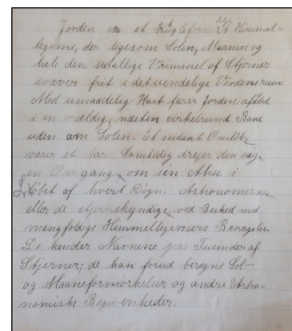 Jorden er et Kugleformigt Himmel-
legeme, der ligesom Solen, Maanen og
hele den utallige Vrimmel af Stjerner
svæver frit i det uendelige Verdensrum
Med umaadelig Hast farer Jorden afsted
i en vældig, næsten cirkelrund Bane
uden om Solen. Et saadant Omløb
varer et Aar. Samtidig drejer den sig
en Omgang om sin Akse i
Løbet af hvert Døgn. Astronomerne
eller de stjernekyndige ved Besked med
mangfoldige Himmellegemers Bevægelse
De kender Navnene paa Tusinder af
Stjerner; de kan forud beregne Sol-
og Maaneformørkelser og andre Astro-
nomiske Begivenheder.